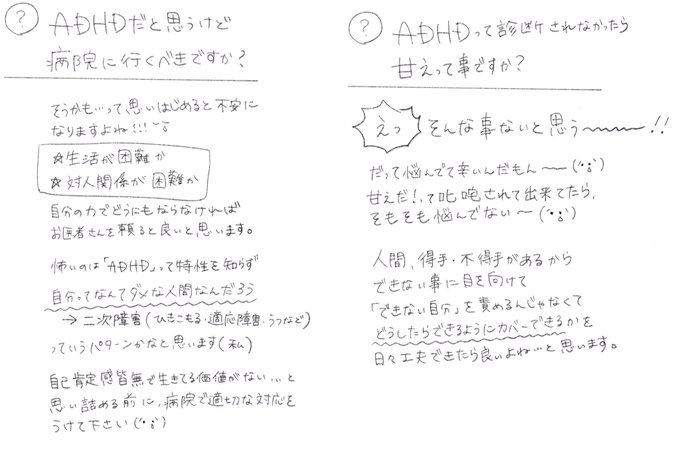 ? ADHDだと思うけど
病院に行くべきですか?
そうかも…って思いはじめると不安に
なりますよね!!!
☆生活が困難か
☆対人関係が困難か
自分の力でどうにもならなければ
お医者さんを頼ると良いと思います。
怖いのは「ADHD」って特性を知らず
自分ってなんてダメな人間なんだろう
→二次障害(ひきこもる・適応障害・うつなど)
っていうパターンかなと思います(私)
自己肯定感皆無で生きてる価値がない…と
思い詰める前に、病院で適切な対応を
うけて下さい
? ADHDって診断されなかったら
甘えって事ですか?
えっ そんな事ないと思う〜〜〜!!
だって悩んでて辛いんだもん〜
甘えだ!って叱咤されて出来てたら、
そもそも悩んでない〜
人間、得手・不得手があるから
できない事に目を向けて
「できない自分」を責めるんじゃなくて
どうしたらできるようにカバーできるかを
日々工夫できたら良いよね…と思います。